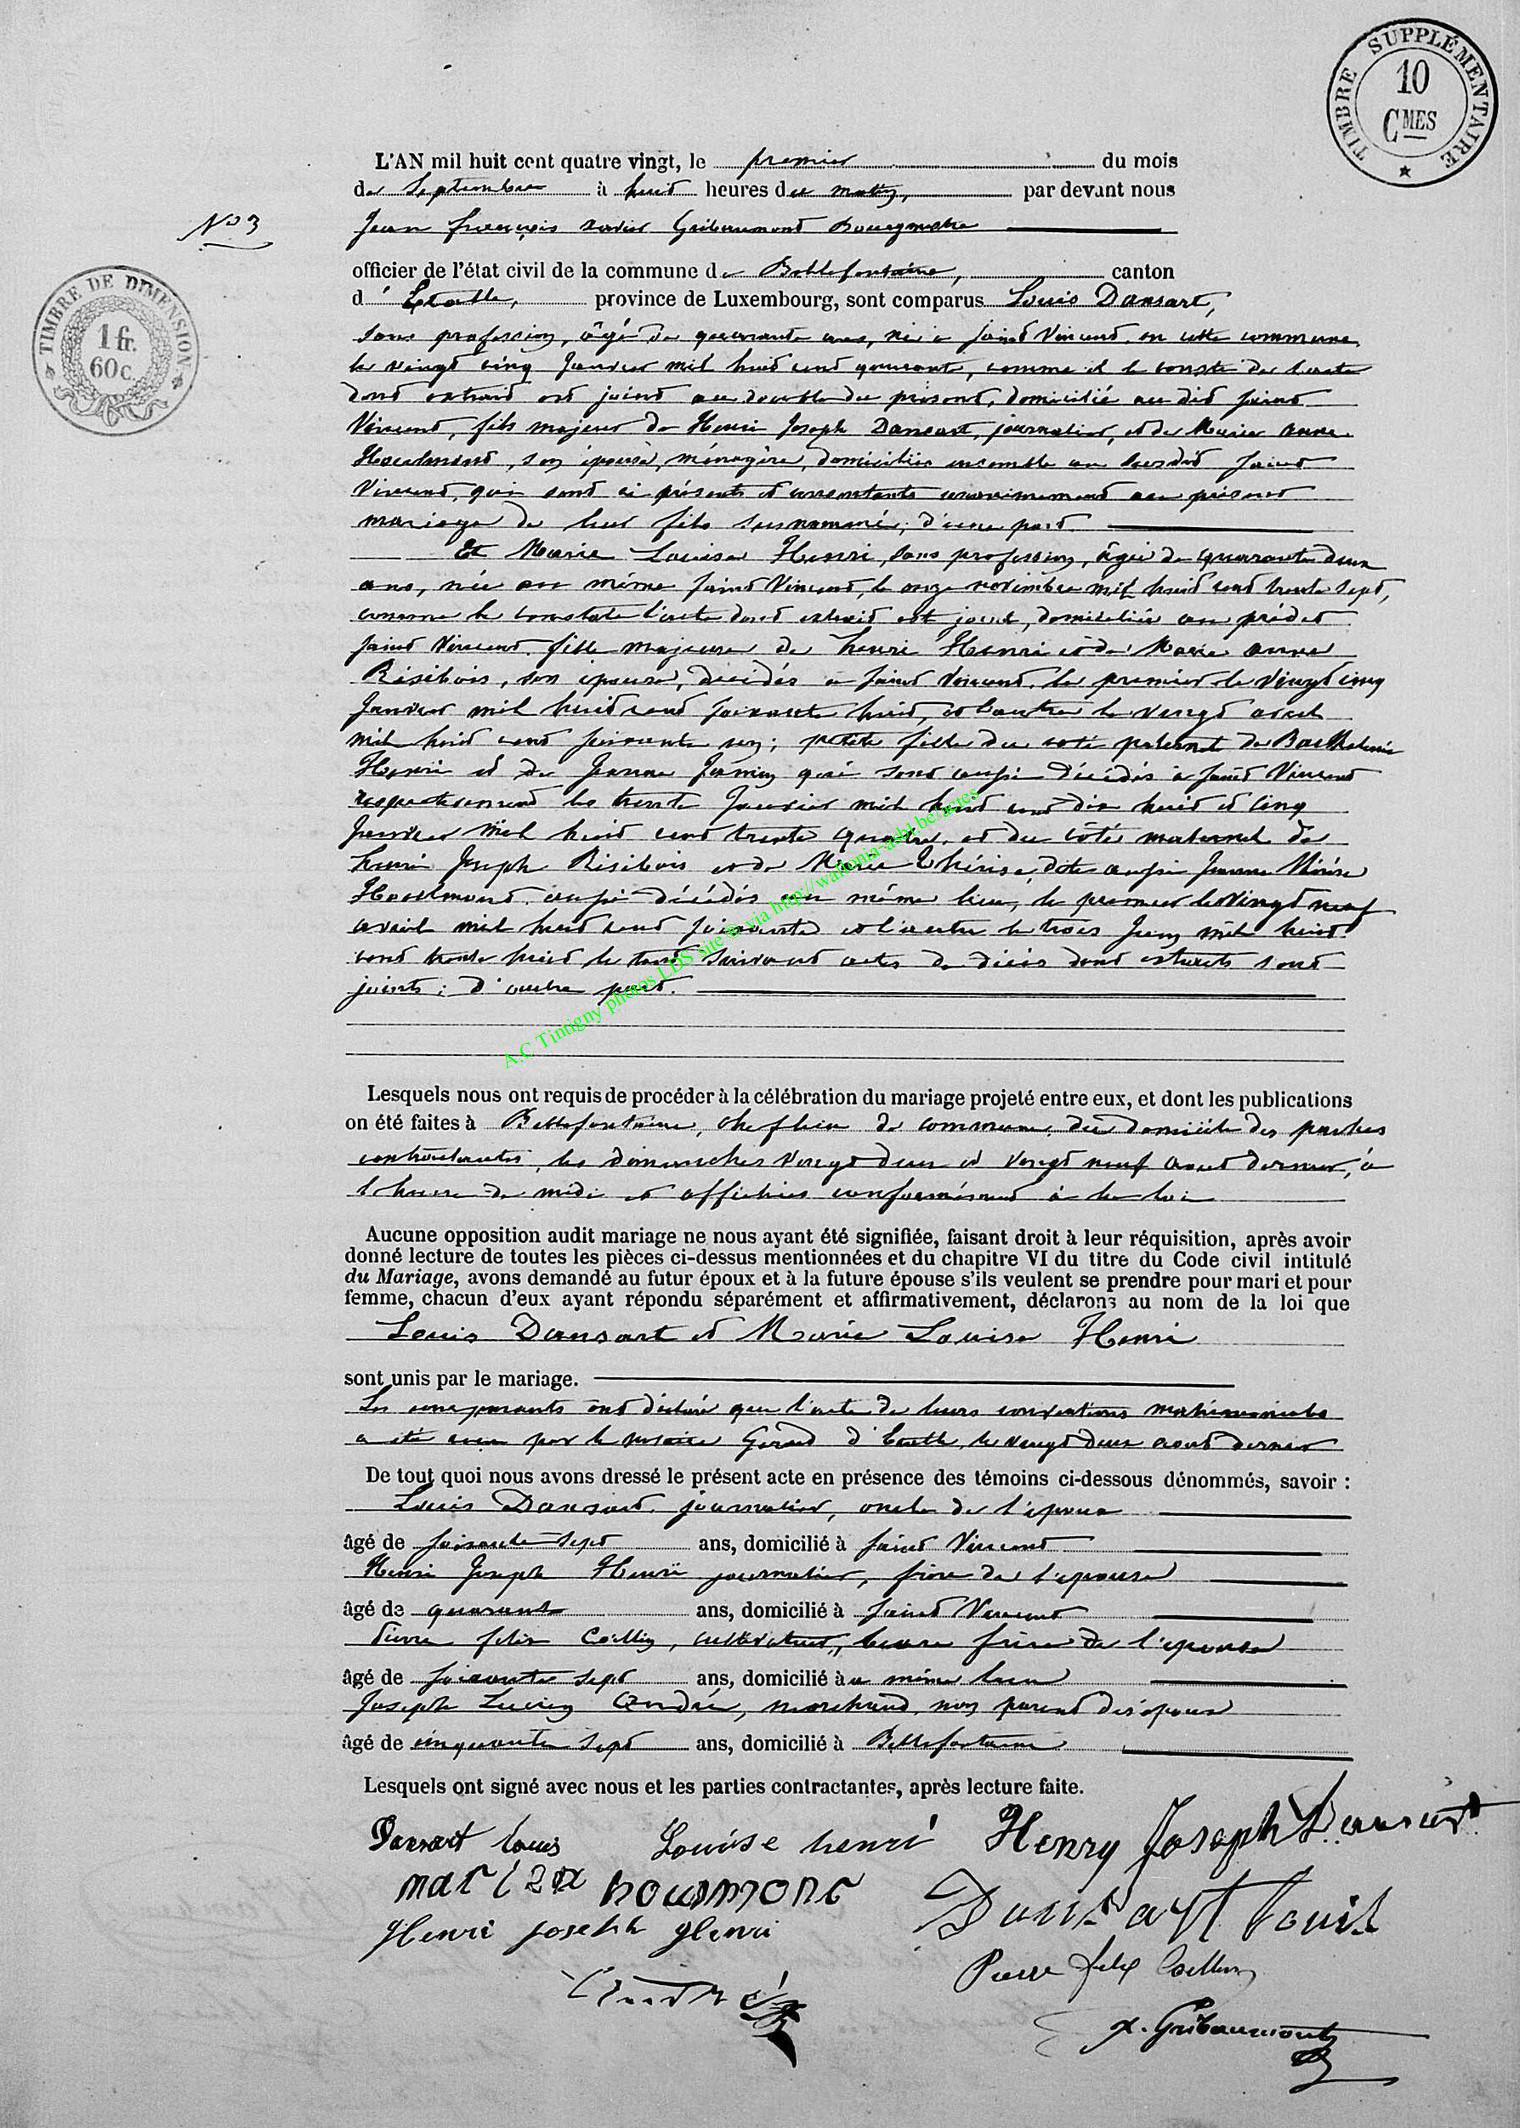 TIMBRE SUPPLÉMENTAIRE
10
CMES
L'AN mil huit cent quatre vingt, le premier du mois
de Septembre à huit heures du matin, par devant nous
No 3
Jean françois xavier Gribaumont Bourgmestre
officier de l'état civil de la commune de Bellefontaine, canton
d' Etalle, province de Luxembourg, sont comparus Louis Dansart,
TIMBRE DE DIMENSION
1 fr.
60 c.
sans profession, âgé de quarante ans, né à saint Vincent en cette commune
le vingt cinq Janvier mil huit cent quarante, comme il le conste de l'acte
dont extrait est joint au double du présent, domicilié au dit saint
Vincent, fils majeur de Henri Joseph Dansart, journalier, et de Marie anne
Houdmont, son épouse, ménagère, domiciliés ensemble au susdit saint
Vincent, qui sont ci présents et consentants au présent
mariage de leur fils susnommé; d'une part.
Et Marie Louise Henri, sans profession, âgée de quarante deux
ans, née au même saint Vincent, le onze novembre mil huit cent trente sept,
comme le constate l'acte dont extrait est joint, domiciliée au prédit
saint Vincent, fille majeure de henri Henri et de Marie anne
Risibois, son épouse, décédés à saint Vincent, le premier le vingt cinq
Janvier mil huit cent soixante huit, et l'autre le vingt avril
mil huit cent soixante six; petite fille du coté paternel de Barthelemi
Henri et de Jeanne qui sont aussi décédés à saint Vincent
respectivement les trente Janvier mil huit cent dix huit et cinq
Janvier mil huit cent trente quatre, et du côté maternel de
henri Joseph Risibois et de Marie Thérèse, dite aussi Jeanne thérèse
Houdmont, aussi décédés au même lieu, le premier le vingt neuf
avril mil huit cent soixante et l'autre le trois Juin mil huit
cent trente huit le tout suivant actes de décès dont extraits sont
joints; d'autre part.
A.C Tintigny photos LDS site @ via http://wallonia-asbl.be/actes
Lesquels nous ont requis de procéder à la célébration du mariage projeté entre eux, et dont les publications
on été faites à Bellefontaine, chef lieu de commune, du domicile des parties
contractantes, les dimanches vingt deux et vingt neuf août dernier, à
l'heure de midi et affichées conformément à la loi
Aucune opposition audit mariage ne nous ayant été signifiée, faisant droit à leur réquisition, après avoir
donné lecture de toutes les pièces ci-dessus mentionnées et du chapitre VI du titre du Code civil intitulé
du Mariage, avons demandé au futur époux et à la future épouse s'ils veulent se prendre pour mari et pour
femme, chacun d'eux ayant répondu séparément et affirmativement, déclarons au nom de la loi que
Louis Dansart et Marie Louise Henri
sont unis par le mariage.
Les comparants ont déclaré que l'acte de leurs conventions matrimoniales
a été par le notaire d'Etalle, le vingt deux août dernier
De tout quoi nous avons dressé le présent acte en présence des témoins ci-dessous dénommés, savoir :
Louis Dansart, journalier, oncle de l'époux
âgé de soixante sept ans, domicilié à saint Vincent
Henri Joseph Henri journalier, frère de l'épouse
âgé de quarante ans, domicilié à saint Vincent
Pierre felix Collin, cultivateur, beau frère de l'épouse
âgé de soixante sept ans, domicilié au même lieu
Joseph Lucien André, marchand, non parent des époux
âgé de cinquante sept ans, domicilié à Bellefontaine
Lesquels ont signé avec nous et les parties contractantes, après lecture faite.
Dansart louis Louise henri Henry Joseph Dansart
houdmont
Dansart louis
Henri joseph Henri
Pierre felix Collin
André
x. Gribaumont